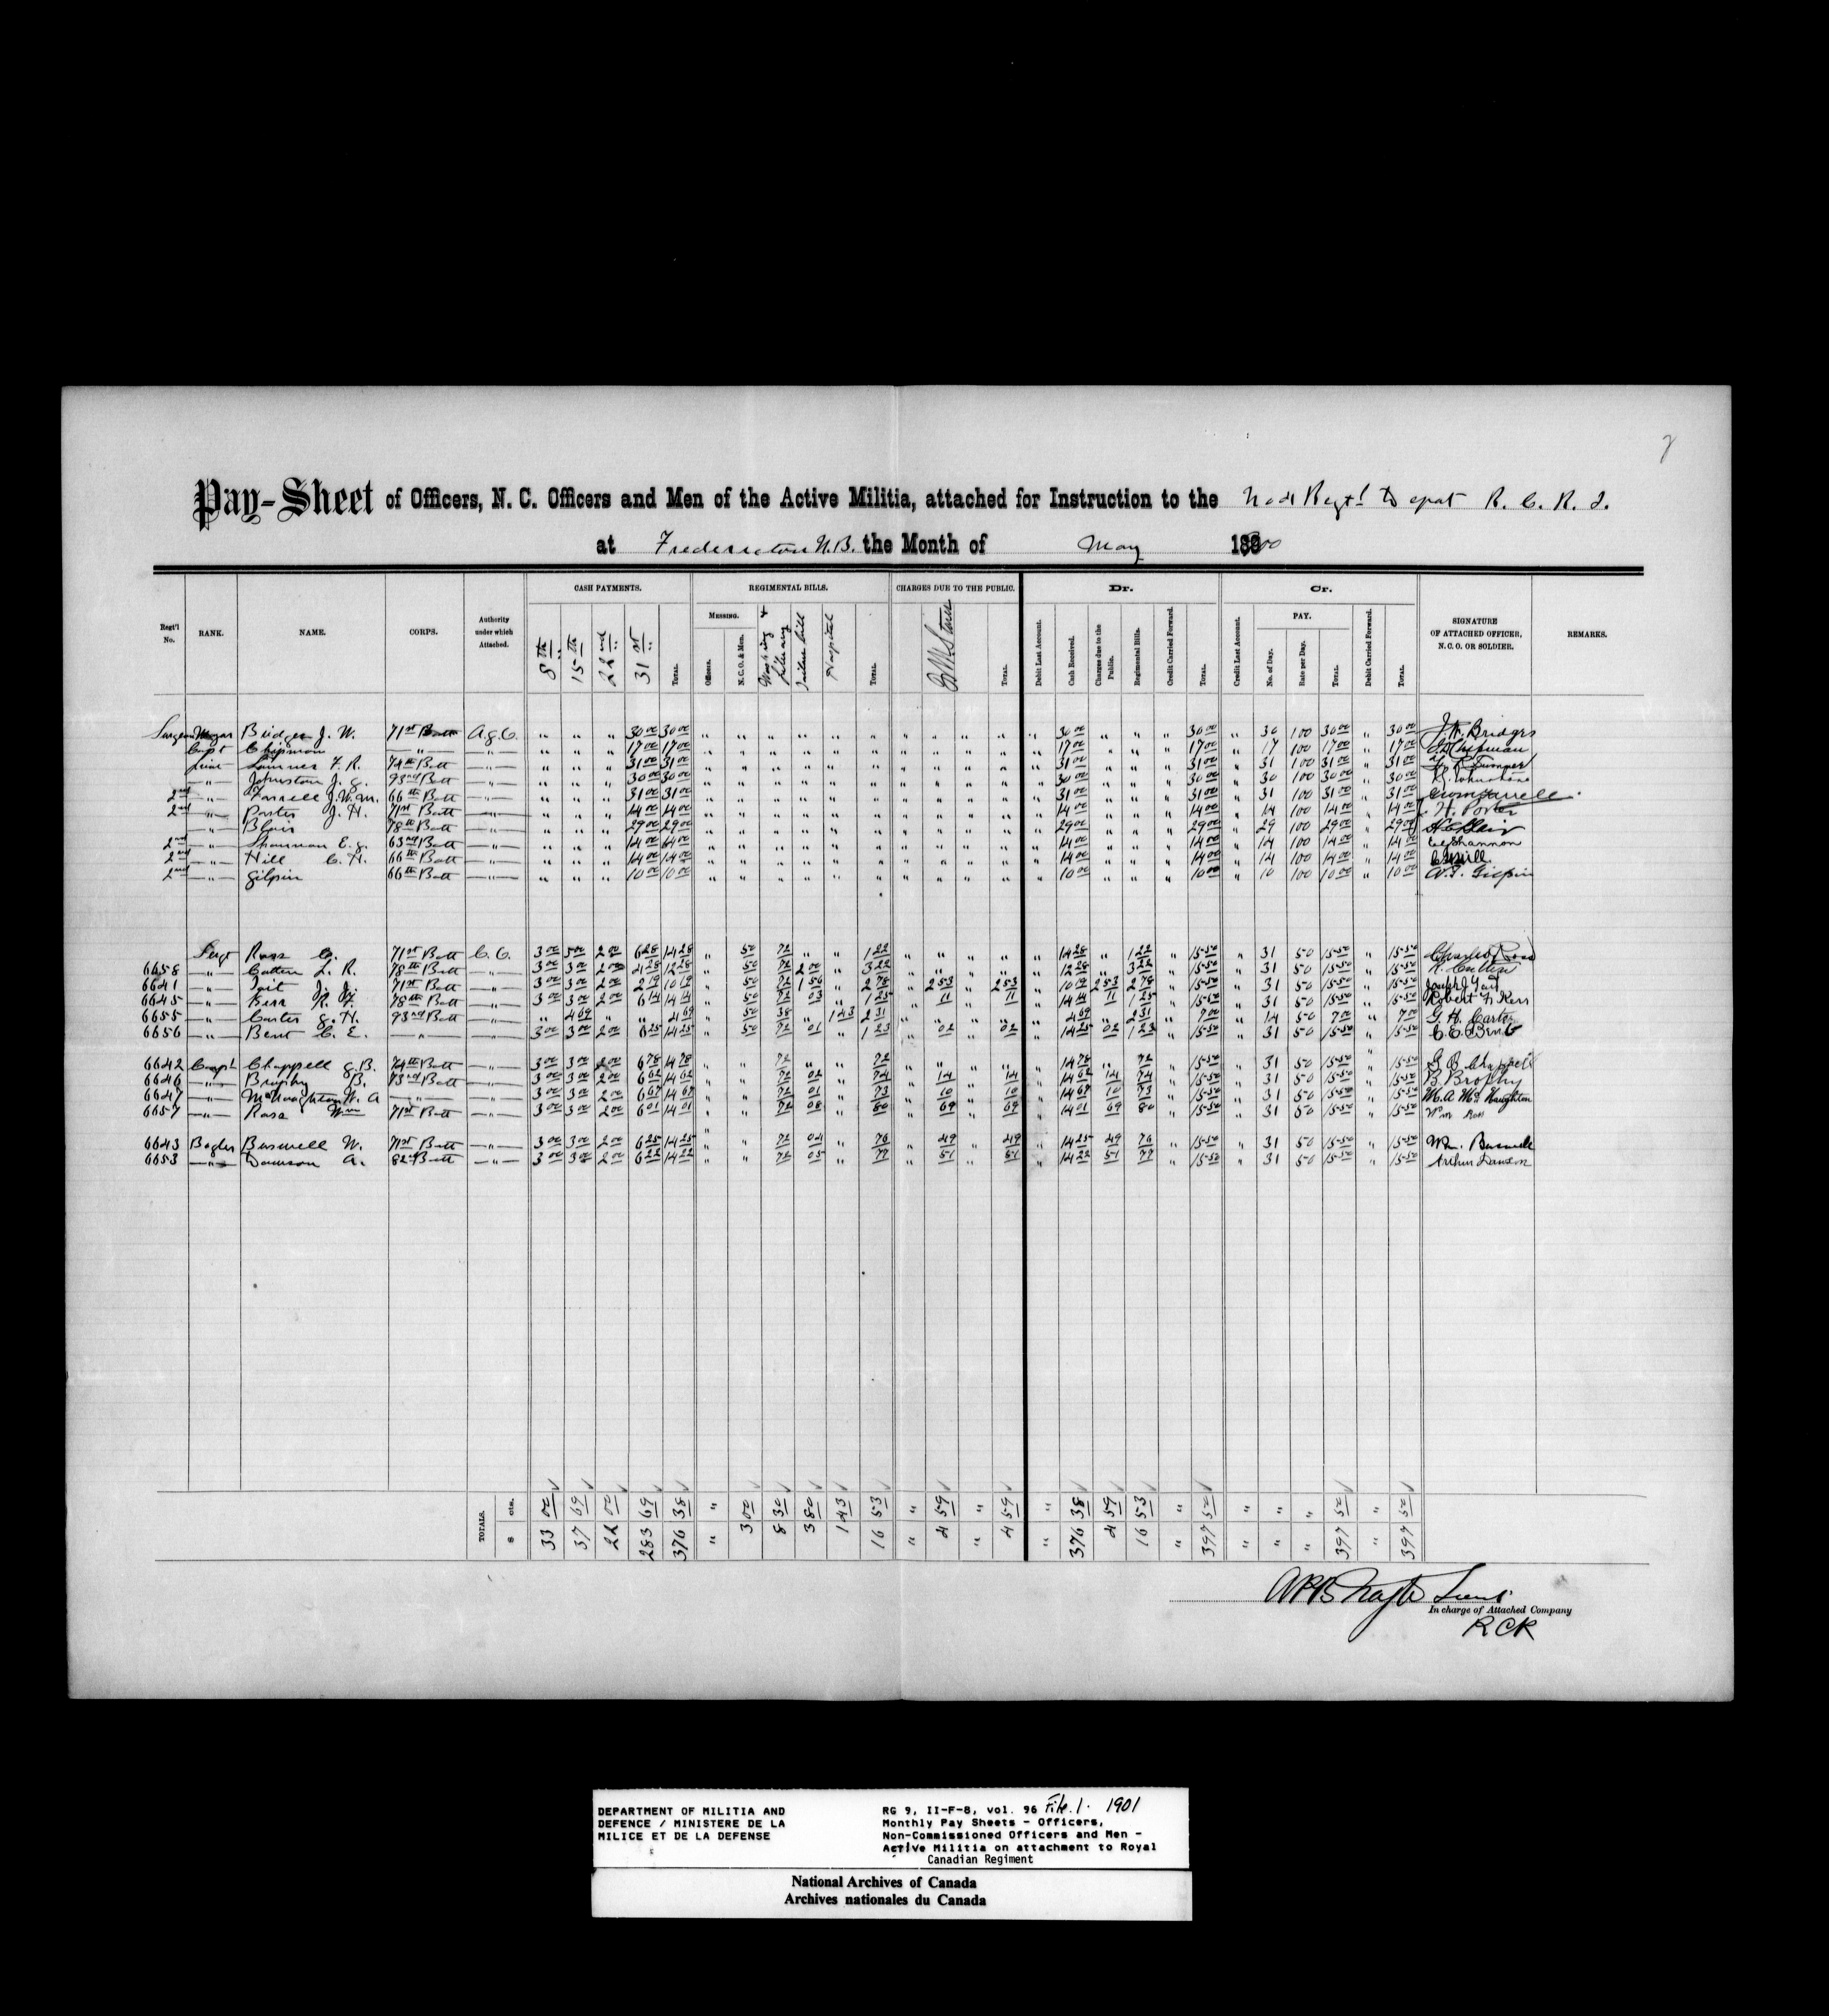 Pay-Sheet of Officers, N. C. Officers and Men of the Active Militia, attached for Instruction to the No 4 Regt'l Depot R. C. R. I.
at Fredericton N.B. the Month of May 1900
CASH PAYMENTS. REGIMENTAL BILLS. CHARGES DUE TO THE PUBLIC. Dr. Cr.
Regt'l No. RANK. NAME. CORPS. Authority under which Attached. 8th 15th 22nd 31st TOTAL. MESSING. Officers. N.C.O. & Men. Washing & Library Tailor bill Hospital TOTAL. TOTAL. Debit Last Account. Cash Received. Charges due to the Public. Regimental Bills. Credit Carried Forward. TOTAL. Credit Last Account. PAY. No. of Day. Rate per Day. TOTAL. Debit Carried Forward. TOTAL. SIGNATURE OF ATTACHED OFFICER, N. C. O. OR SOLDIER. REMARKS.
Surgeon Major Bridges J. W. 71st Batt A.g.C. " " " 30 00 30 00 " " " " " " " " " " " 30 00 " " " 30 00 " 30 1 00 30 00 " 30 00 J. W. Bridges
Capt Chipman —"— —"— " " " 17 00 17 00 " " " " " " " " " " " 17 00 " " " 17 00 " 17 1 00 17 00 " 17 00 Chipman
Lieut Sumner F. R. 74th Batt —"— " " " 31 00 31 00 " " " " " " " " " " " 31 00 " " " 31 00 " 31 1 00 31 00 " 31 00 F. R. Sumner
—"— Johnston J. g. 93rd Batt —"— " " " 30 00 30 00 " " " " " " " " " " " 30 00 " " " 30 00 " 30 1 00 30 00 " 30 00
2nd —"— Farrell J.W.M. 66th Batt —"— " " " 31 00 31 00 " " " " " " " " " " " 31 00 " " " 31 00 " 31 1 00 31 00 " 31 00
2nd —"— Porter J. H. 71st Batt —"— " " " 14 00 14 00 " " " " " " " " " " " 14 00 " " " 14 00 " 14 1 00 14 00 " 14 00 J. H. Porter
—"— Blair 78th Batt —"— " " " 29 00 29 00 " " " " " " " " " " " 29 00 " " " 29 00 " 29 1 00 29 00 " 29 00 Blair
2nd —"— Shannon E. g. 63rd Batt —"— " " " 14 00 14 00 " " " " " " " " " " " 14 00 " " " 14 00 " 14 1 00 14 00 " 14 00 Shannon
2nd —"— Hill C. H. 66th Batt —"— " " " 14 00 14 00 " " " " " " " " " " " 14 00 " " " 14 00 " 14 1 00 14 00 " 14 00 C H Hill
2nd —"— Gilpin 66th Batt —"— " " " 10 00 10 00 " " " " " " " " " " " 10 00 " " " 10 00 " 10 1 00 10 00 " 10 00 Gilpin
Sergt Ross C. 71st Batt C. C. 3 00 5 00 2 00 6 28 14 28 " 50 72 " " 1 22 " " " " " 14 28 " 1 22 " 15 50 " 31 50 15 50 " 15 50 Charles Ross
6658 —"— Cutten L. R. 78th Batt —"— 3 00 3 00 2 00 4 28 12 28 " 50 72 2 00 " 3 22 " " " " " 12 28 " 3 22 " 15 50 " 31 50 15 50 " 15 50 Cutten
6641 —"— Tait J. J. 71st Batt —"— 3 00 3 00 2 00 2 19 10 19 " 50 72 1 56 " 2 78 " 2 53 " 2 53 " 10 19 2 53 2 78 " 15 50 " 31 50 15 50 " 15 50 Joseph J Tait
6645 —"— Kerr R. F. 78th Batt —"— 3 00 3 00 2 00 6 14 14 14 " 50 72 03 " 1 25 " 11 " 11 " 14 14 11 1 25 " 15 50 " 31 50 15 50 " 15 50 Robert F. Kerr
6655 —"— Carter g. H. 93rd Batt —"— " 4 69 " " 4 69 " 50 38 " 1 43 2 31 " " " " " 4 69 " 2 31 " 7 00 " 14 50 7 00 " 7 00 G. H. Carter
6656 —"— Bent C. E. —"— —"— 3 00 3 00 2 00 6 25 14 25 " 50 72 01 " 1 23 " 02 " 02 " 14 25 02 1 23 " 15 50 " 31 50 15 50 " 15 50 C. E. Bent
6642 Corpl Chappell g. B. 74th Batt —"— 3 00 3 00 2 00 6 78 14 78 " " 72 " " 72 " " " " " 14 78 " 72 " 15 50 " 31 50 15 50 " 15 50 G B Chappell
6646 —"— Brophy B. 73rd Batt —"— 3 00 3 00 2 00 6 62 14 62 " " 72 02 " 74 " 14 " 14 " 14 62 14 74 " 15 50 " 31 50 15 50 " 15 50 B. Brophy
6647 —"— McNaughton W. A —"— —"— 3 00 3 00 2 00 6 67 14 67 " " 72 01 " 73 " 10 " 10 " 14 67 10 73 " 15 50 " 31 50 15 50 " 15 50 W. A McNaughton
6657 —"— Ross Wm 71st Batt —"— 3 00 3 00 2 00 6 01 14 01 " " 72 08 " 80 " 69 " 69 " 14 01 69 80 " 15 50 " 31 50 15 50 " 15 50 Wm Ross
6643 Bugler Buswell W. 71st Batt —"— 3 00 3 00 2 00 6 25 14 25 " " 72 04 " 76 " 49 " 49 " 14 25 49 76 " 15 50 " 31 50 15 50 " 15 50 Wm. Buswell
6653 —"— Dawson A. 82nd Batt —"— 3 00 3 00 2 00 6 22 14 22 " " 72 05 " 77 " 51 " 51 " 14 22 51 77 " 15 50 " 31 50 15 50 " 15 50 Arthur Dawson
TOTALS. $ cts. 33 00 37 69 22 00 283 69 376 38 " 3 00 8 30 3 80 1 43 16 53 " 4 59 " 4 59 " 376 38 4 59 16 53 " 397 50 " " " 397 50 " 397 50
Lieut
In charge of Attached Company
RCR
DEPARTMENT OF MILITIA AND
DEFENCE / MINISTERE DE LA
MILICE ET DE LA DEFENSE
RG 9, II-F-8, vol. 96 File. 1. 1901
Monthly Pay Sheets - Officers,
Non-Commissioned Officers and Men -
Active Militia on attachment to Royal
Canadian Regiment
National Archives of Canada
Archives nationales du Canada